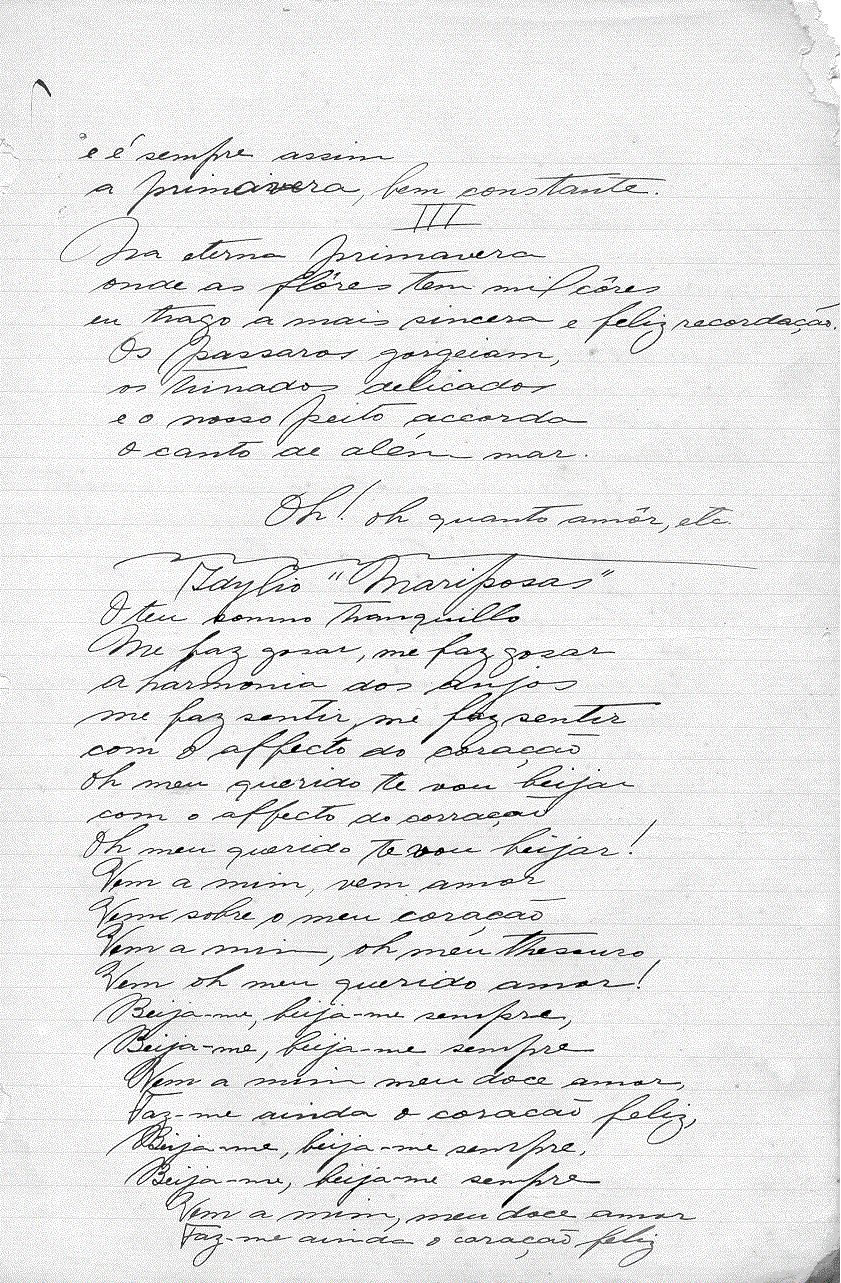 e é sempre assim
a primavera, bem constante.
III
Na eterna primavera
onde as flôres tem mil côres
eu trago a mais sincera e feliz recordação.
Os passaros gorgeiam,
os trinados delicados
e o nosso peito accorda
o canto de além mar.
Oh! oh quanto amôr, etc.
Idylio "Mariposas"
O teu somno tranquillo
Me faz gosar, me faz gosar
a harmonia dos anjos
me faz sentir, me faz sentir
com o affecto do coração
Oh meu querido te vou beijar
com o affecto do corração
Oh meu querido te vou beijar!
Vem a mim, vem amor
Vem sobre o meu coração
Vem a mim, oh meu thesouro,
Vem oh meu querido amor!
Beija-me, beija-me sempre,
Beija-me, beija-me sempre
Vem a mim meu doce amor,
Faz-me ainda o coracão feliz,
Beija-me, beija-me sempre,
Beija-me, beija-me sempre
Vem a mim, meu doce amor
Faz-me ainda o coração feliz